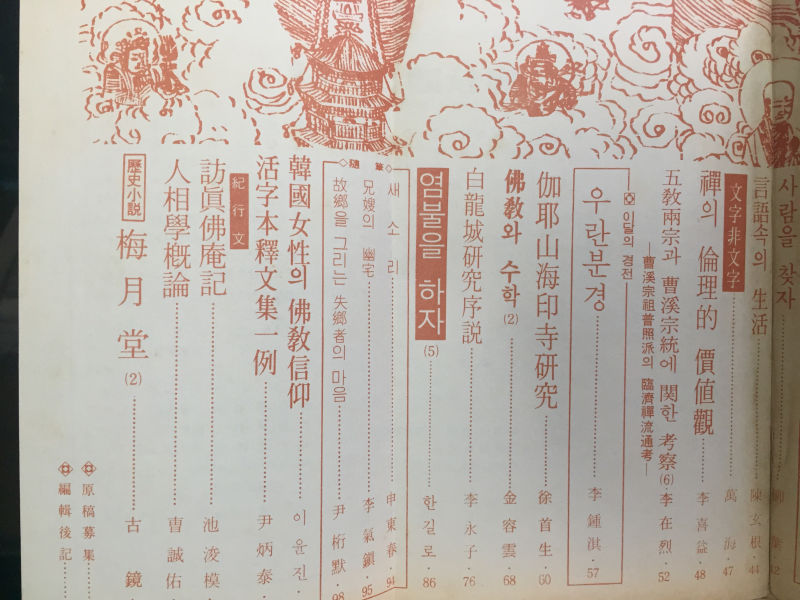 사람을 찾자
言語속의 生活 陳玄根·44
文字非文字 萬海·47
禪의 倫理的 價値觀 李喜益·48
五敎兩宗과 曹溪宗統에 關한 考察(6) 李在烈·52
—曹溪宗祖普照派의 臨濟禪流通考—
이달의 경전
우란분경 李鍾淇·57
伽耶山海印寺硏究 徐首生·60
佛敎와 수학(2) 金容雲·68
白龍城硏究序說 李永子·76
염불을 하자(5) 한길로·86
隨筆
새 소 리 申東春·94
兄嫂의 幽宅 李氣鎭·95
故鄕을 그리는 失鄕者의 마음 尹桁默·98
韓國女性의 佛敎信仰 이윤진·
活字本釋文集一例 尹炳泰·
紀行文
訪眞佛庵記 池浚模·
人相學槪論 曺誠佑·
歷史小説 梅月堂(2) 古鏡·
原稿募集
編輯後記